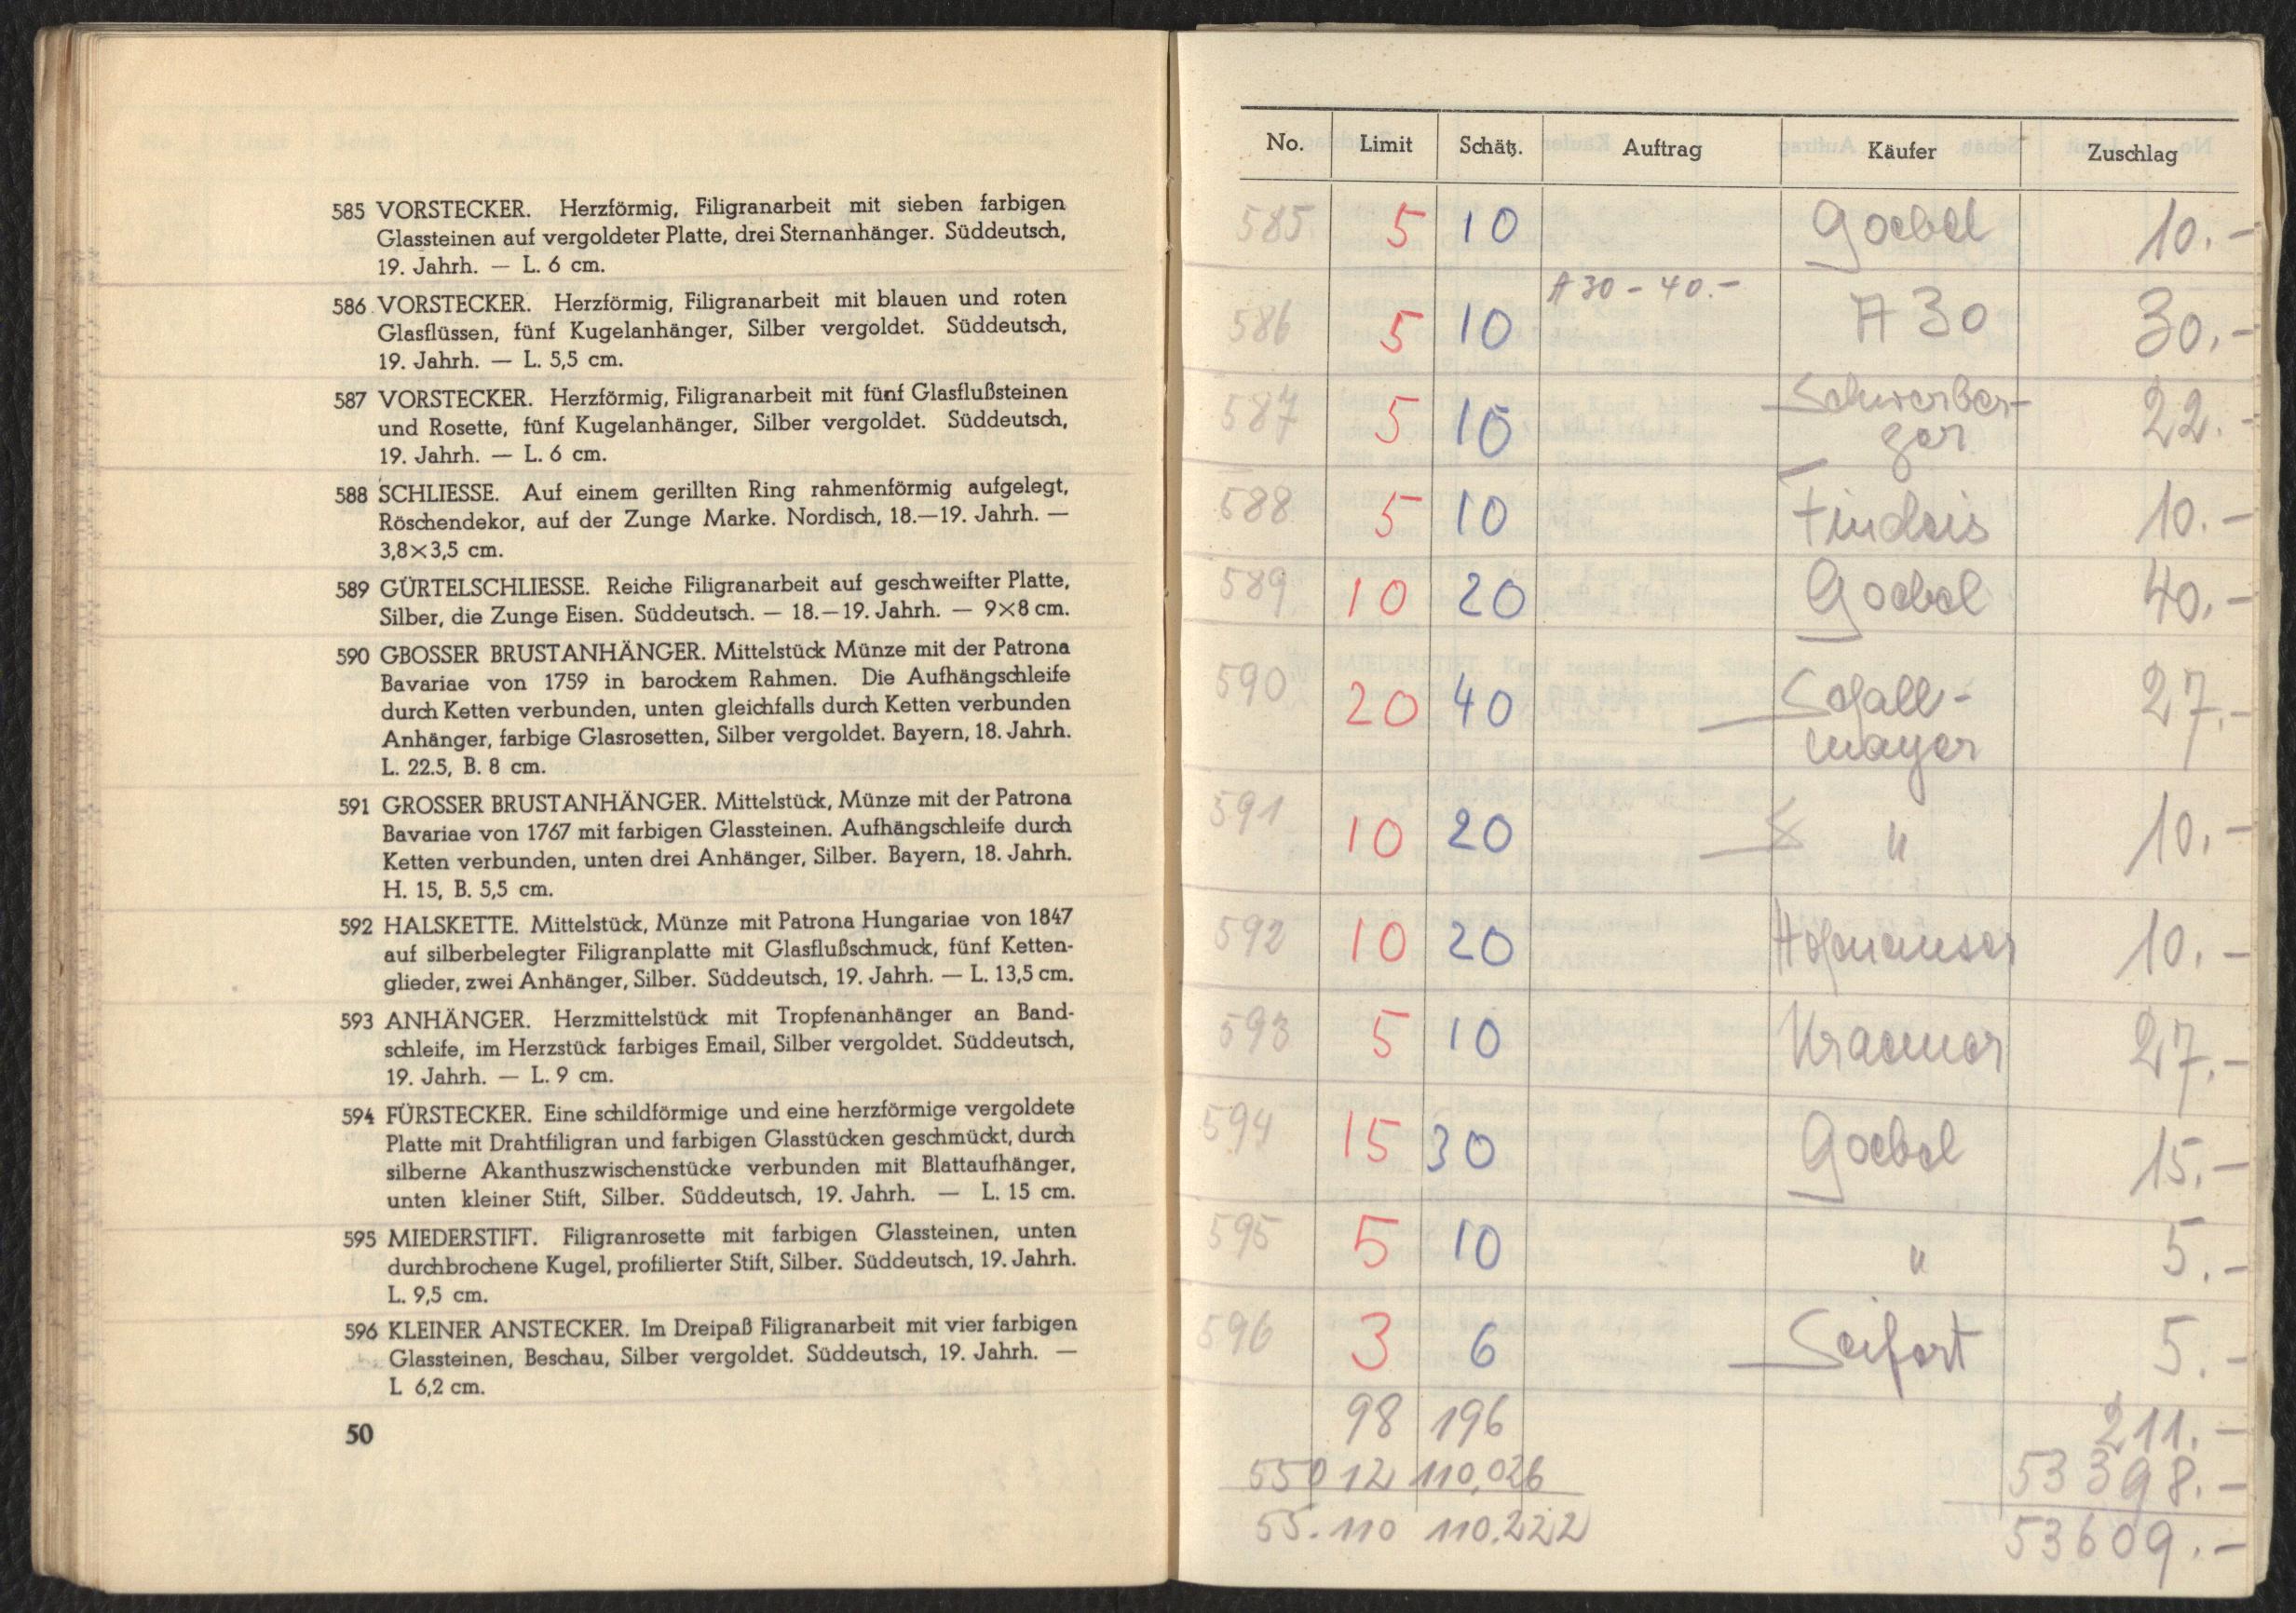 585 VORSTECKER. Herzförmig, Filigranarbeit mit sieben farbigen
Glassteinen auf vergoldeter Platte, drei Sternanhänger. Süddeutsch,
19. Jahrh. — L. 6 cm.
586 VORSTECKER. Herzförmig, Filigranarbeit mit blauen und roten
Glasflüssen, fünf Kugelanhänger, Silber vergoldet. Süddeutsch,
19. Jahrh. — L. 5,5 cm.
587 VORSTECKER. Herzförmig, Filigranarbeit mit fünf Glasflußsteinen
und Rosette, fünf Kugelanhänger, Silber vergoldet. Süddeutsch,
19. Jahrh. — L. 6 cm.
588 SCHLIESSE. Auf einem gerillten Ring rahmenförmig aufgelegt,
Röschendekor, auf der Zunge Marke. Nordisch, 18.—19. Jahrh. —
3,8×3,5 cm.
589 GÜRTELSCHLIESSE. Reiche Filigranarbeit auf geschweifter Platte,
Silber, die Zunge Eisen. Süddeutsch. — 18.—19. Jahrh. — 9×8 cm.
590 GBOSSER BRUSTANHÄNGER. Mittelstück Münze mit der Patrona
Bavariae von 1759 in barockem Rahmen. Die Aufhängschleife
durch Ketten verbunden, unten gleichfalls durch Ketten verbunden
Anhänger, farbige Glasrosetten, Silber vergoldet. Bayern, 18. Jahrh.
L. 22.5, B. 8 cm.
591 GROSSER BRUSTANHÄNGER. Mittelstück, Münze mit der Patrona
Bavariae von 1767 mit farbigen Glassteinen. Aufhängschleife durch
Ketten verbunden, unten drei Anhänger, Silber. Bayern, 18. Jahrh.
H. 15, B. 5,5 cm.
592 HALSKETTE. Mittelstück, Münze mit Patrona Hungariae von 1847
auf silberbelegter Filigranplatte mit Glasflußschmuck, fünf Ketten-
glieder, zwei Anhänger, Silber. Süddeutsch, 19. Jahrh. — L. 13,5 cm.
593 ANHÄNGER. Herzmittelstück mit Tropfenanhänger an Band-
schleife, im Herzstück farbiges Email, Silber vergoldet. Süddeutsch,
19. Jahrh. — L. 9 cm.
594 FÜRSTECKER. Eine schildförmige und eine herzförmige vergoldete
Platte mit Drahtfiligran und farbigen Glasstücken geschmückt, durch
silberne Akanthuszwischenstücke verbunden mit Blattaufhänger,
unten kleiner Stift, Silber. Süddeutsch, 19. Jahrh. — L. 15 cm.
595 MIEDERSTIFT. Filigranrosette mit farbigen Glassteinen, unten
durchbrochene Kugel, profilierter Stift, Silber. Süddeutsch, 19. Jahrh.
L. 9,5 cm.
596 KLEINER ANSTECKER. Im Dreipaß Filigranarbeit mit vier farbigen
Glassteinen, Beschau, Silber vergoldet. Süddeutsch, 19. Jahrh. —
L 6,2 cm.
50
No. Limit Schätz. Auftrag Käufer Zuschlag
585 5 10 Goebel 10.-
586 5 10 A 30 - 40.- A 30 30.-
587 5 10 Schwerber- 22.-
ger
588 5 10 Findeis 10.-
589 10 20 Goebel 40.-
590 20 40 Schall- 27.-
mayer
591 10 20 " 10.-
592 10 20 10.-
593 5 10 Kraemer 27.-
594 15 30 Goebel 15.-
595 5 10 " 5.-
596 3 6 Seifert 5.-
98 196 211.-
55012 110,026 53398.-
55.110 110.222 53609.-